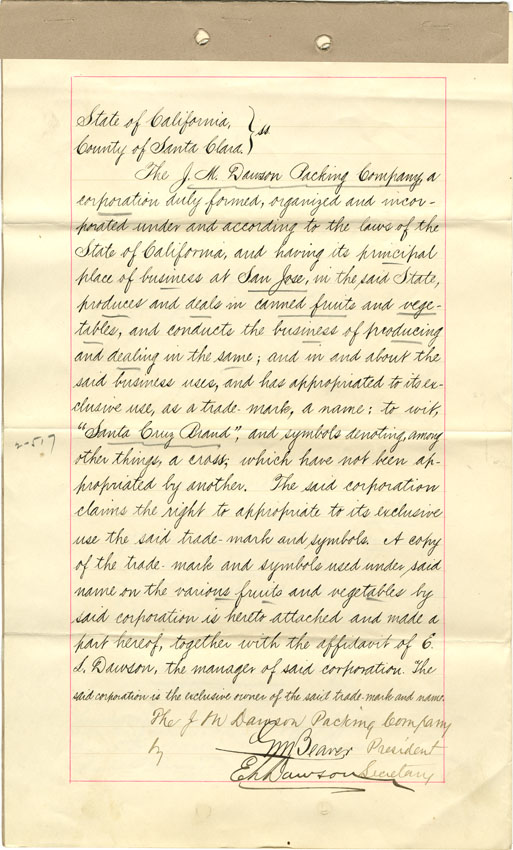 State of California,
County of Santa Clara. } ss
The J. M. Dawson Packing Company, a
corporation duly formed, organized and incor-
porated under and according to the laws of the
State of California, and having its principal
place of business at San Jose, in the said State,
produces and deals in canned fruits and vege-
tables, and conducts the business of producing
and dealing in the same; and in and about the
said business uses, and has appropriated to its ex-
clusive use, as a trade-mark, a name: to wit,
"Santa Cruz Brand", and symbols denoting, among
other things, a cross; which have not been ap-
propriated by another. The said corporation
claims the right to appropriate to its exclusive
use the said trade-mark and symbols. A copy
of the trade-mark and symbols used under said
name on the various fruits and vegetables by
said corporation is hereto attached and made a
part hereof, together with the affidavit of E.
L. Dawson, the manager of said corporation. The
said corporation is the exclusive owner of the said trade-mark and name.
The J M Dawson Packing Company
by
G M Beaver President
E L Dawson Secretary